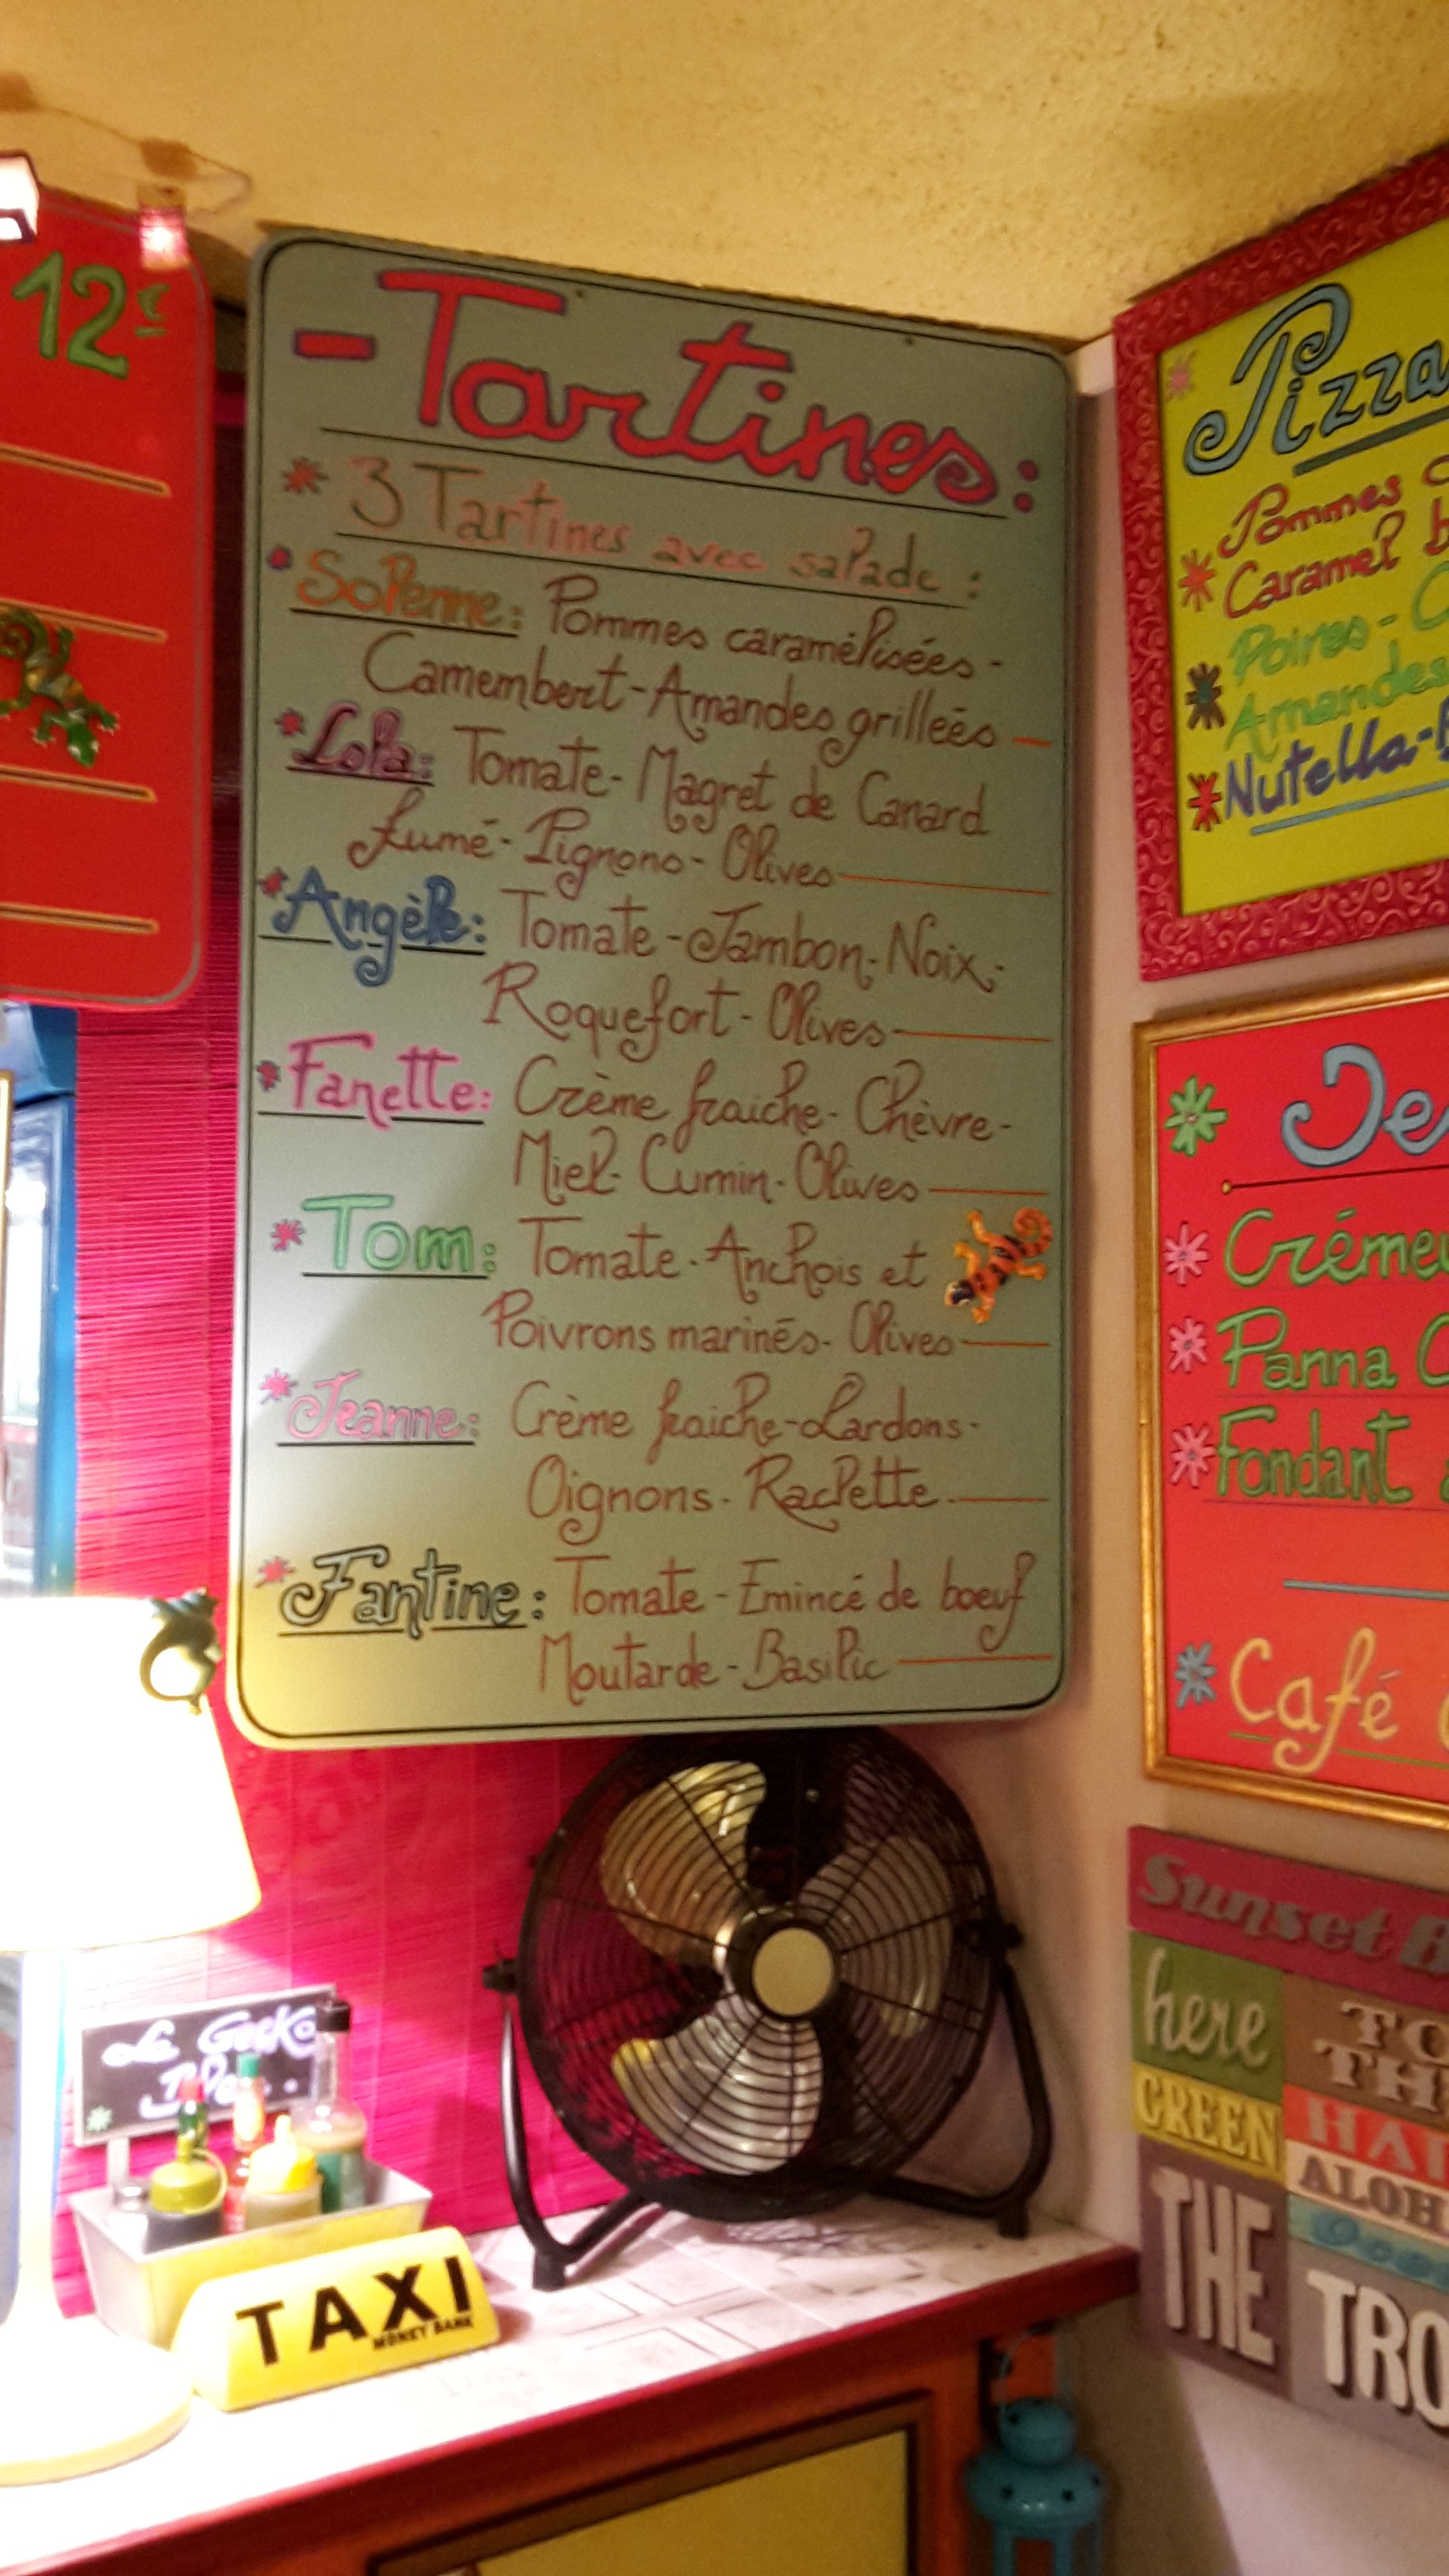 12€
-Tartines:
3 Tartines avec salade :
Solenne: Pommes caramélisées -
Camembert - Amandes grilleés
Lola: Tomate - Magret de Canard
fumé - Pignons - Olives
Angèle: Tomate - Jambon - Noix -
Roquefort - Olives
Fanette: Crème fraiche - Chèvre -
Miel - Cumin - Olives
Tom: Tomate - Anchois et
Poivrons marinés - Olives
Jeanne: Crème fraiche - Lardons -
Oignons - Raclette
Fantine: Tomate - Emincé de boeuf
Moutarde - Basilic
Pizza
Pommes
Caramel
Poires -
Amandes
Nutella -
Crémeu
Panna C
Fondant
Café
Sunset B
here
GREEN
THE
TO
TH
HAI
ALOH
TRO
Le Gecko
TAXI
MONEY BANK